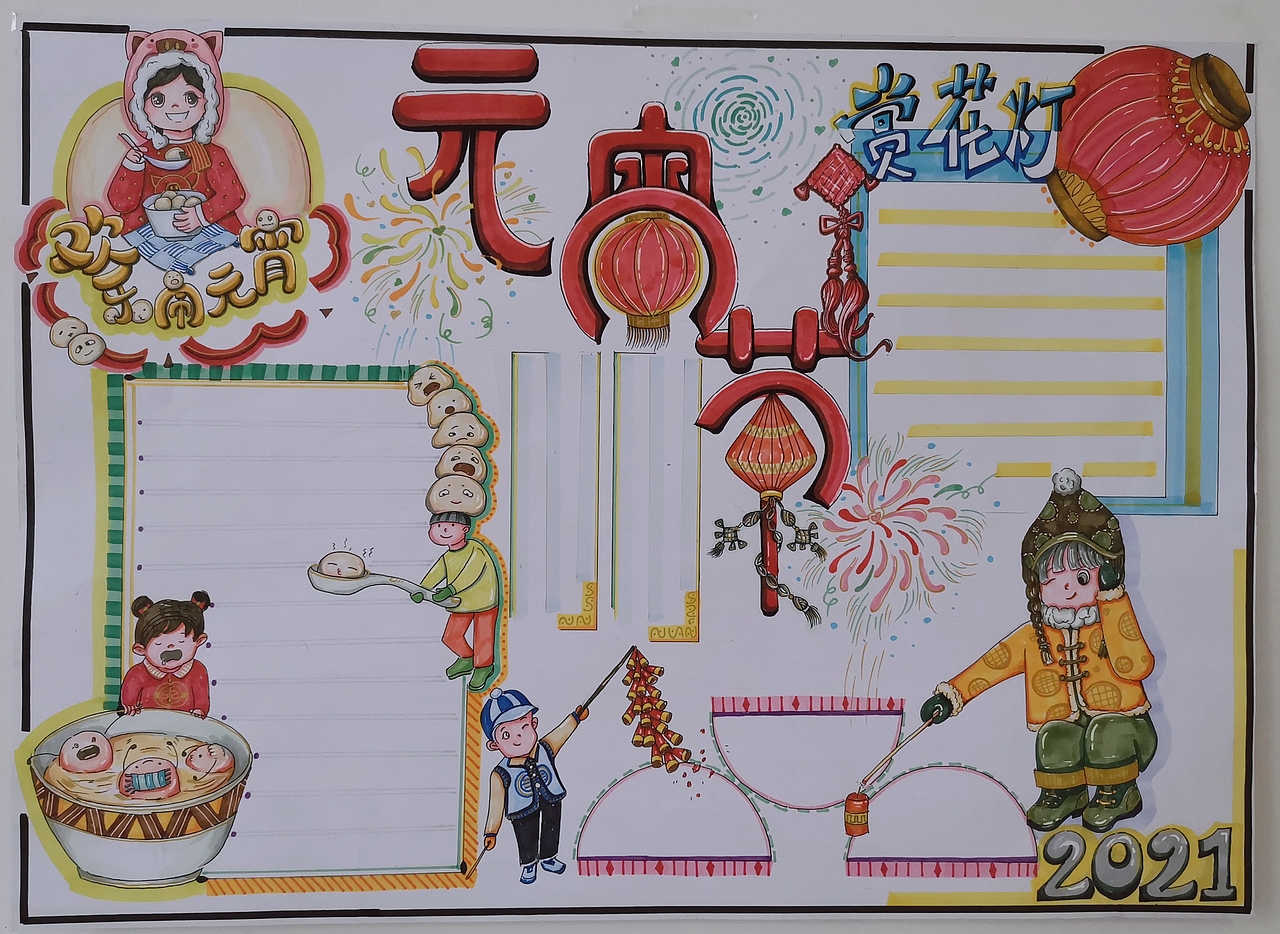 元宵节
欢乐闹元宵
赏花灯
2021